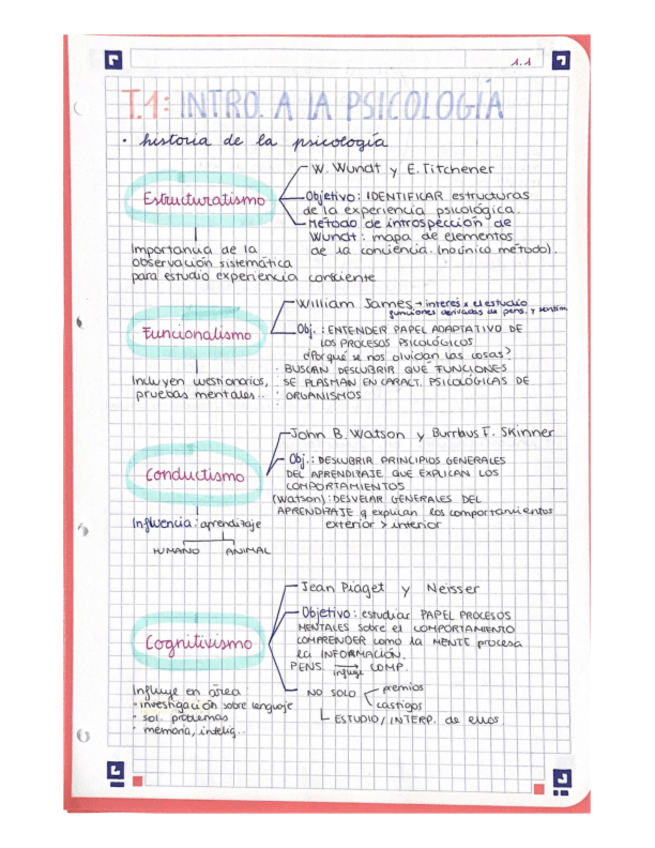 1.1
T.1: INTRO. A LA PSICOLOGÍA
· historia de la psicología
Estructuralismo
W. Wundt y E. Titchener
Objetivo: IDENTIFICAR estructuras
de la experiencia psicológica.
Método de introspección de
Wundt: mapa de elementos
de la conciencia. (no único método).
Importancia de la
observación sistemática
para estudio experiencia consciente
Funcionalismo
William James → interés x el estudio
funciones derivadas de pens. y sentim
Obj.: ENTENDER PAPEL ADAPTATIVO DE
LOS PROCESOS PSICOLÓGICOS
¿Por qué se nos olvidan las cosas?
BUSCAN DESCUBRIR QUÉ FUNCIONES
SE PLASMAN EN CARACT. PSICOLÓGICAS DE
ORGANISMOS
Incluyen cuestionarios,
pruebas mentales..
Conductismo
John B. Watson y Burrhus F. Skinner
Obj.: DESCUBRIR PRINCIPIOS GENERALES
DEL APRENDIZAJE QUE EXPLICAN LOS
COMPORTAMIENTOS
(Watson): DESVELAR GENERALES DEL
APRENDIZAJE q explican los comportamientos
exterior > interior
Influencia: aprendizaje
HUMANO ANIMAL
Cognitivismo
Jean Piaget y Neisser
Objetivo: estudiar PAPEL PROCESOS
MENTALES sobre el COMPORTAMIENTO
COMPRENDER como la MENTE procesa
la INFORMACIÓN.
PENS. → COMP.
influye
NO SOLO premios
castigos
ESTUDIO/INTERP. de ellos.
Influye en área
· investigación sobre lenguaje
· sol. problemas
· memoria, intelig..